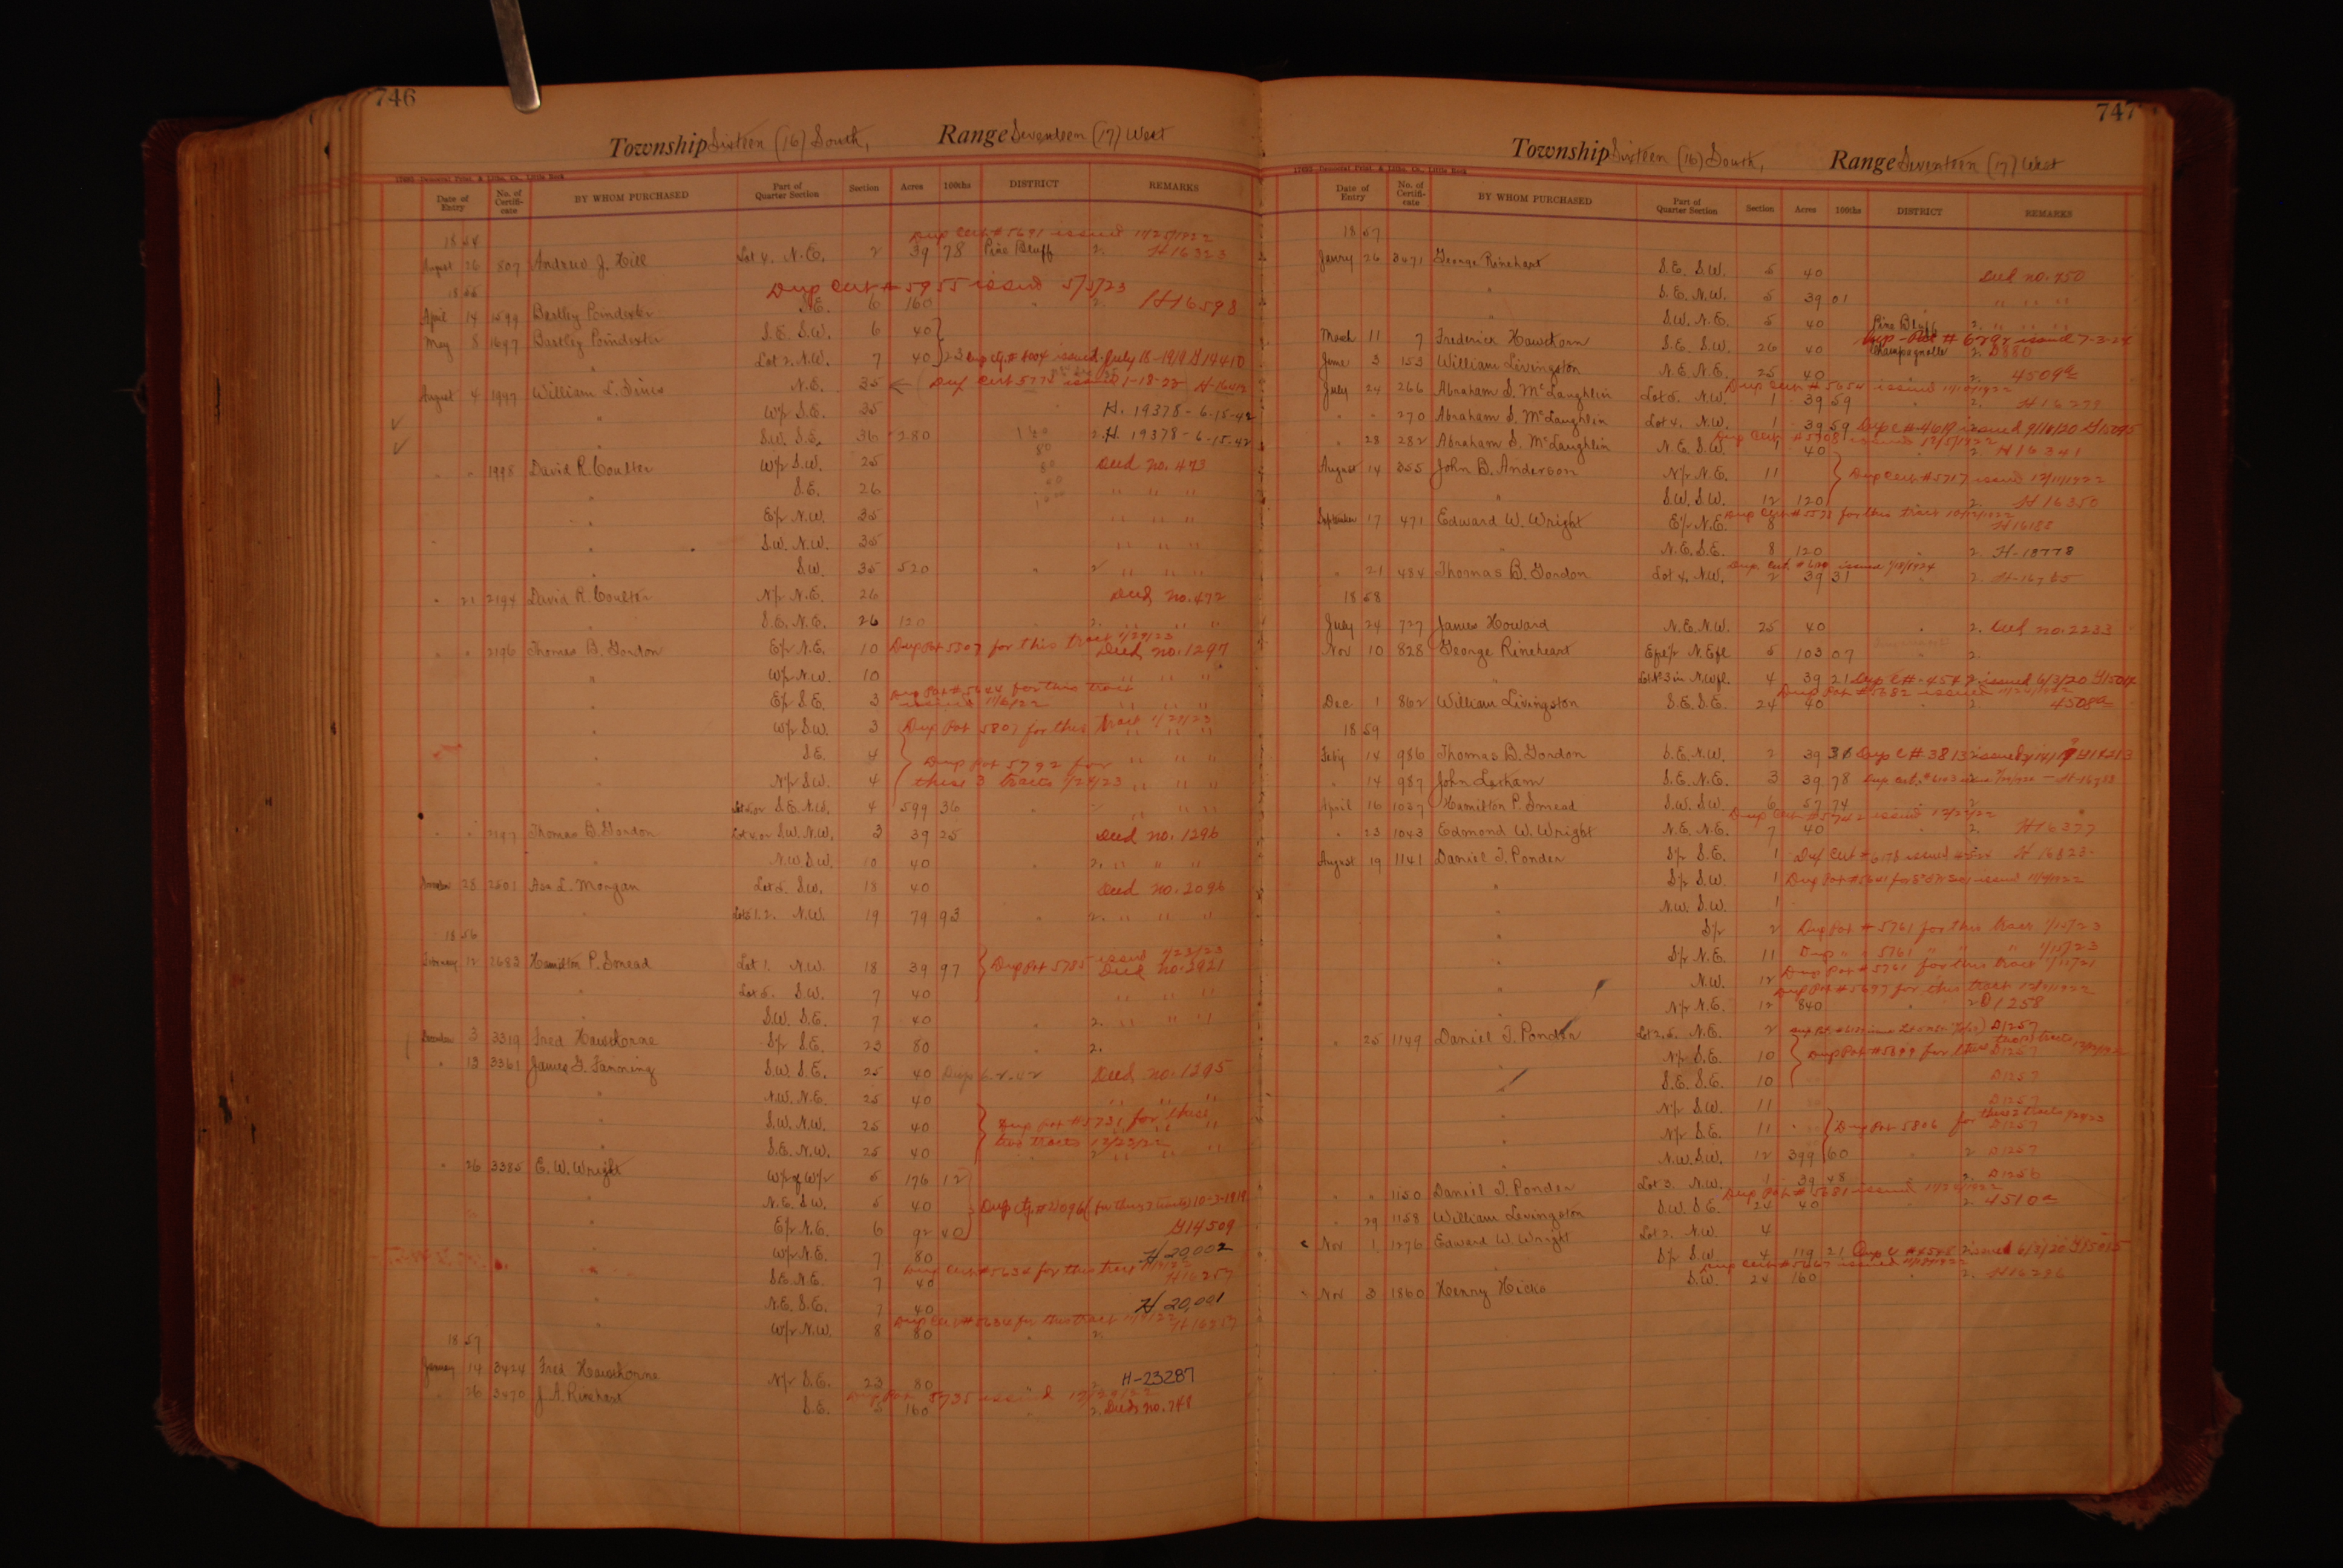 746
Township Sixteen (16) South, Range Seventeen (17) West
Date of Entry No. of Certificate BY WHOM PURCHASED Part of Quarter Section Section Acres 100ths DISTRICT REMARKS
Dup Cert # 5691 issued 11/25/1922
1854
August 26 807 Andrew J. Hill Lot 4. N.E. 2 39 78 Pine Bluff 2. H16323
Dup Cert # 5955 issued 5/5/23
1855
April 14 1599 Bartley Poindexter N.E. 6 160 " 2. H16598
May 8 1697 Bartley Poindexter S.E. S.W. 6 40
" Lot 2. N.W. 7 40 issued July 18-1919 G14410
August 4 1997 William L. Sines N.E. 35 Dup Cert 5775 issued 1-18-23 H-16412
" W½ S.E. 35 H. 19378-6-15-42
" S.W. S.E. 36 280 2. H. 19378-6-15-42
" " 1998 David R. Coulter W½ S.W. 25 Deed no. 473
" S.E. 26 " " "
" E½ N.W. 35 " " "
" S.W. N.W. 35 " " "
" S.W. 35 520 " 2 " " "
" 21 2194 David R. Coulter N½ N.E. 26 Deed no. 472
" S.E. N.E. 26 120 " 2. " " "
" " 2196 Thomas B. Gordon E½ N.E. 10 Dup Pat 5807 for this tract 1/29/23 Deed no. 1297
" W½ N.W. 10 " " "
" E½ S.E. 3 Dup Pat # 5644 for this tract issued 11/6/22 " " "
" W½ S.W. 3 Dup Pat 5807 for this tract 1/29/23 " " "
" S.E. 4 Dup Pat 5792 for " " "
" N½ S.W. 4 these 3 tracts 1/24/23 " " "
" S.E. N.W. 4 599 36 " 2 " " "
" " 2197 Thomas B. Gordon Lot 4 or S.W. N.W. 3 39 25 Deed no. 1296
" N.W. S.W. 10 40 " 2. " " "
28 2501 Asa L. Morgan Lot 5. S.W. 18 40 Deed no. 2096
" Lots 1.2. N.W. 19 79 93 " 2. " " "
1856
February 12 2683 Hamilton P. Smead Lot 1. N.W. 18 39 97 Dup Pat 5785 issued 1/23/23 Deed no. 2921
" Lot 5. S.W. 7 40 " " "
" S.W. S.E. 7 40 " 2. " " "
3 3319 Fred Hawthorne S½ S.E. 23 80 " 2.
" 13 3361 James G. Fanning S.W. S.E. 25 40 Deed no. 1295
" N.W. N.E. 25 40 " " "
" S.W. N.W. 25 40 Dup Pat # 5731 for these
" S.E. N.W. 25 40 two tracts 12/23/22 " "
" 26 3385 E. W. Wright W½ of W½ 5 176 12
" N.E. S.W. 5 40 10-3-1919
" E½ N.E. 6 92 40 G14509
" W½ N.E. 7 80 H 20,002
" S.E. N.E. 7 40 Dup Cert # 5634 for this tract H16257
" N.E. S.E. 7 40 H 20,001
" W½ N.W. 8 80 Dup Cert # 5634 for this tract " 2. H16257
1857
January 14 3424 Fred Hawthorne N½ S.E. 23 80 " 2 H-23287
" 26 3470 J. A. Rinehart S.E. 5 160 Dup Pat 5735 issued 12/29/22 2. Deed no. 748
747
Township Sixteen (16) South, Range Seventeen (17) West
Date of Entry No. of Certificate BY WHOM PURCHASED Part of Quarter Section Section Acres 100ths DISTRICT REMARKS
1857
Janry 26 3471 George Rinehart S.E. S.W. 5 40 Deed no. 750
" S.E. N.W. 5 39 01 " " "
" S.W. N.E. 5 40 Pine Bluff 2. " " "
March 11 7 Frederick Hawthorn S.E. S.W. 26 40 Champagnolle 2. D880
June 3 153 William Livingston N.E. N.E. 25 40 " 2. 4509a
July 24 266 Abraham S. McLaughlin Lot 5. N.W. 1 39 59 Dup Cert # 5654 issued " 2. H16278
" " 270 Abraham S. McLaughlin Lot 4. N.W. 1 39 59 Dup C # 4619 issued 9/10/20 G15095
" 28 282 Abraham S. McLaughlin N.E. S.W. 1 40 Dup Cert # 5708 issued 12/5/1922 " 2. H16341
August 14 355 John B. Anderson N½ N.E. 11 Dup Cert # 5717 issued 12/11/1922
" S.W. S.W. 12 120 " 2. H16350
September 17 471 Edward W. Wright E½ N.E. 8 for this tract H16188
" N.E. S.E. 8 120 " 2. H-18778
" 21 484 Thomas B. Gordon Lot 4. N.W. 2 39 31 " 2.
1858
July 24 727 James Howard N.E. N.W. 25 40 " 2. Deed no. 2233
Nov 10 828 George Rineheart E½ N.E¼ 5 103 07 " 2.
" N.W¼. 4 39 21 issued 6/3/20
Dec 1 862 William Livingston S.E. S.E. 24 40 Dup Pat # 5682 issued " 2. 4508a
1859
Feby 14 986 Thomas B. Gordon S.E. N.W. 2 39 Dup C # 3813 issued
" 14 987 John Lasham S.E. N.E. 3 39 78
April 16 1027 Hamilton P. Smead S.W. S.W. 6 57 74 " 2
" 23 1043 Edmond W. Wright N.E. N.E. 7 40 Dup Cert # 5742 issued 12/29/22 " 2. H16377
August 19 1141 Daniel T. Ponder S½ S.E. 1 H 16823
" S½ S.W. 1
" N.W. S.W. 1
" S½ 2 Dup Pat # 5761 for this tract 1/11/23
" S½ N.E. 11 Dup " " 5761 " " " 1/11/23
" N.W. 12 Dup Pat # 5761 for this tract
" N½ N.E. 12 840 Dup Pat # 5697 for this tract " 2 D1258
" 25 1149 Daniel T. Ponder Lot 2,5. N.E. 2 D1257
" N½ S.E. 10 D1257
" S.E. S.E. 10 D1257
" N½ S.W. 11 D1257
" N½ S.E. 11 Dup Pat 5806 for these 2 tracts D1257
" N.W. S.W. 12 399 60 " 2 D1257
" " 1150 Daniel T. Ponder Lot 3. N.W. 1 39 48 " 2. D1256
" 29 1158 William Livingston S.W. S.E. 24 40 Dup Pat # 5681 issued " 2. 4510a
Nov 1 1276 Edward W. Wright Lot 2. N.W. 4
" S½ S.W. 4 119 21
Nov 3 1860 Henry Hicks S.W. 24 160 Dup Cert # 5667 issued " 2. H16296